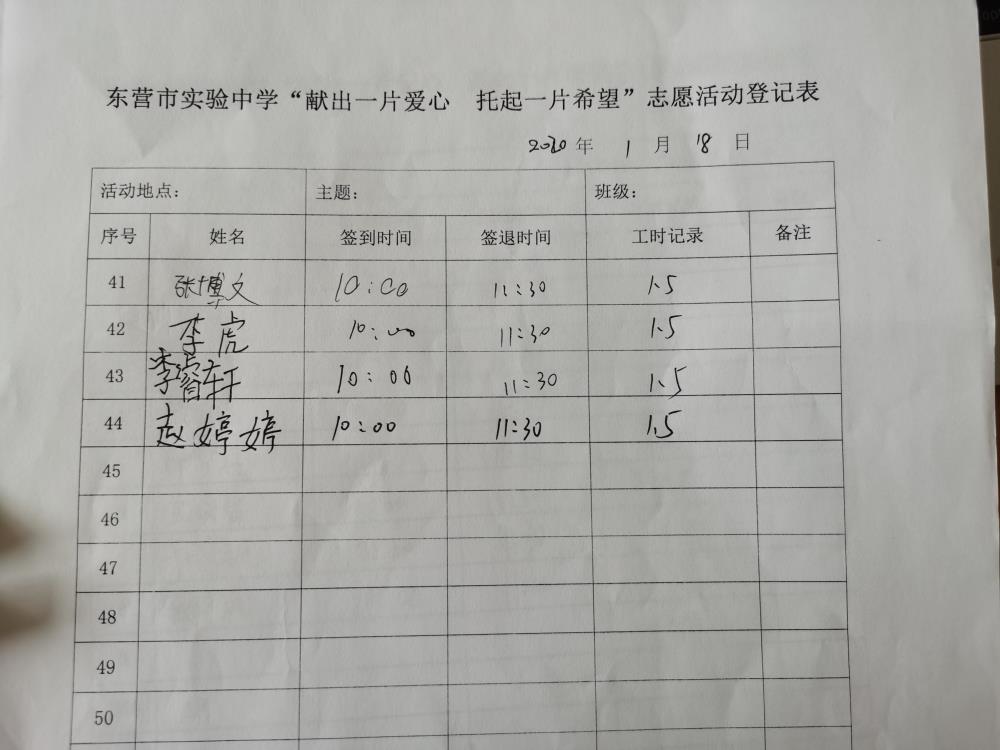 东营市实验中学“献出一片爱心 托起一片希望”志愿活动登记表
2020年 1 月 18 日
活动地点: 主题: 班级:
序号 姓名 签到时间 签退时间 工时记录 备注
41 张博文 10:00 11:30 1.5
42 李虎 10:00 11:30 1.5
43 李睿轩 10:00 11:30 1.5
44 赵婷婷 10:00 11:30 1.5
45
46
47
48
49
50